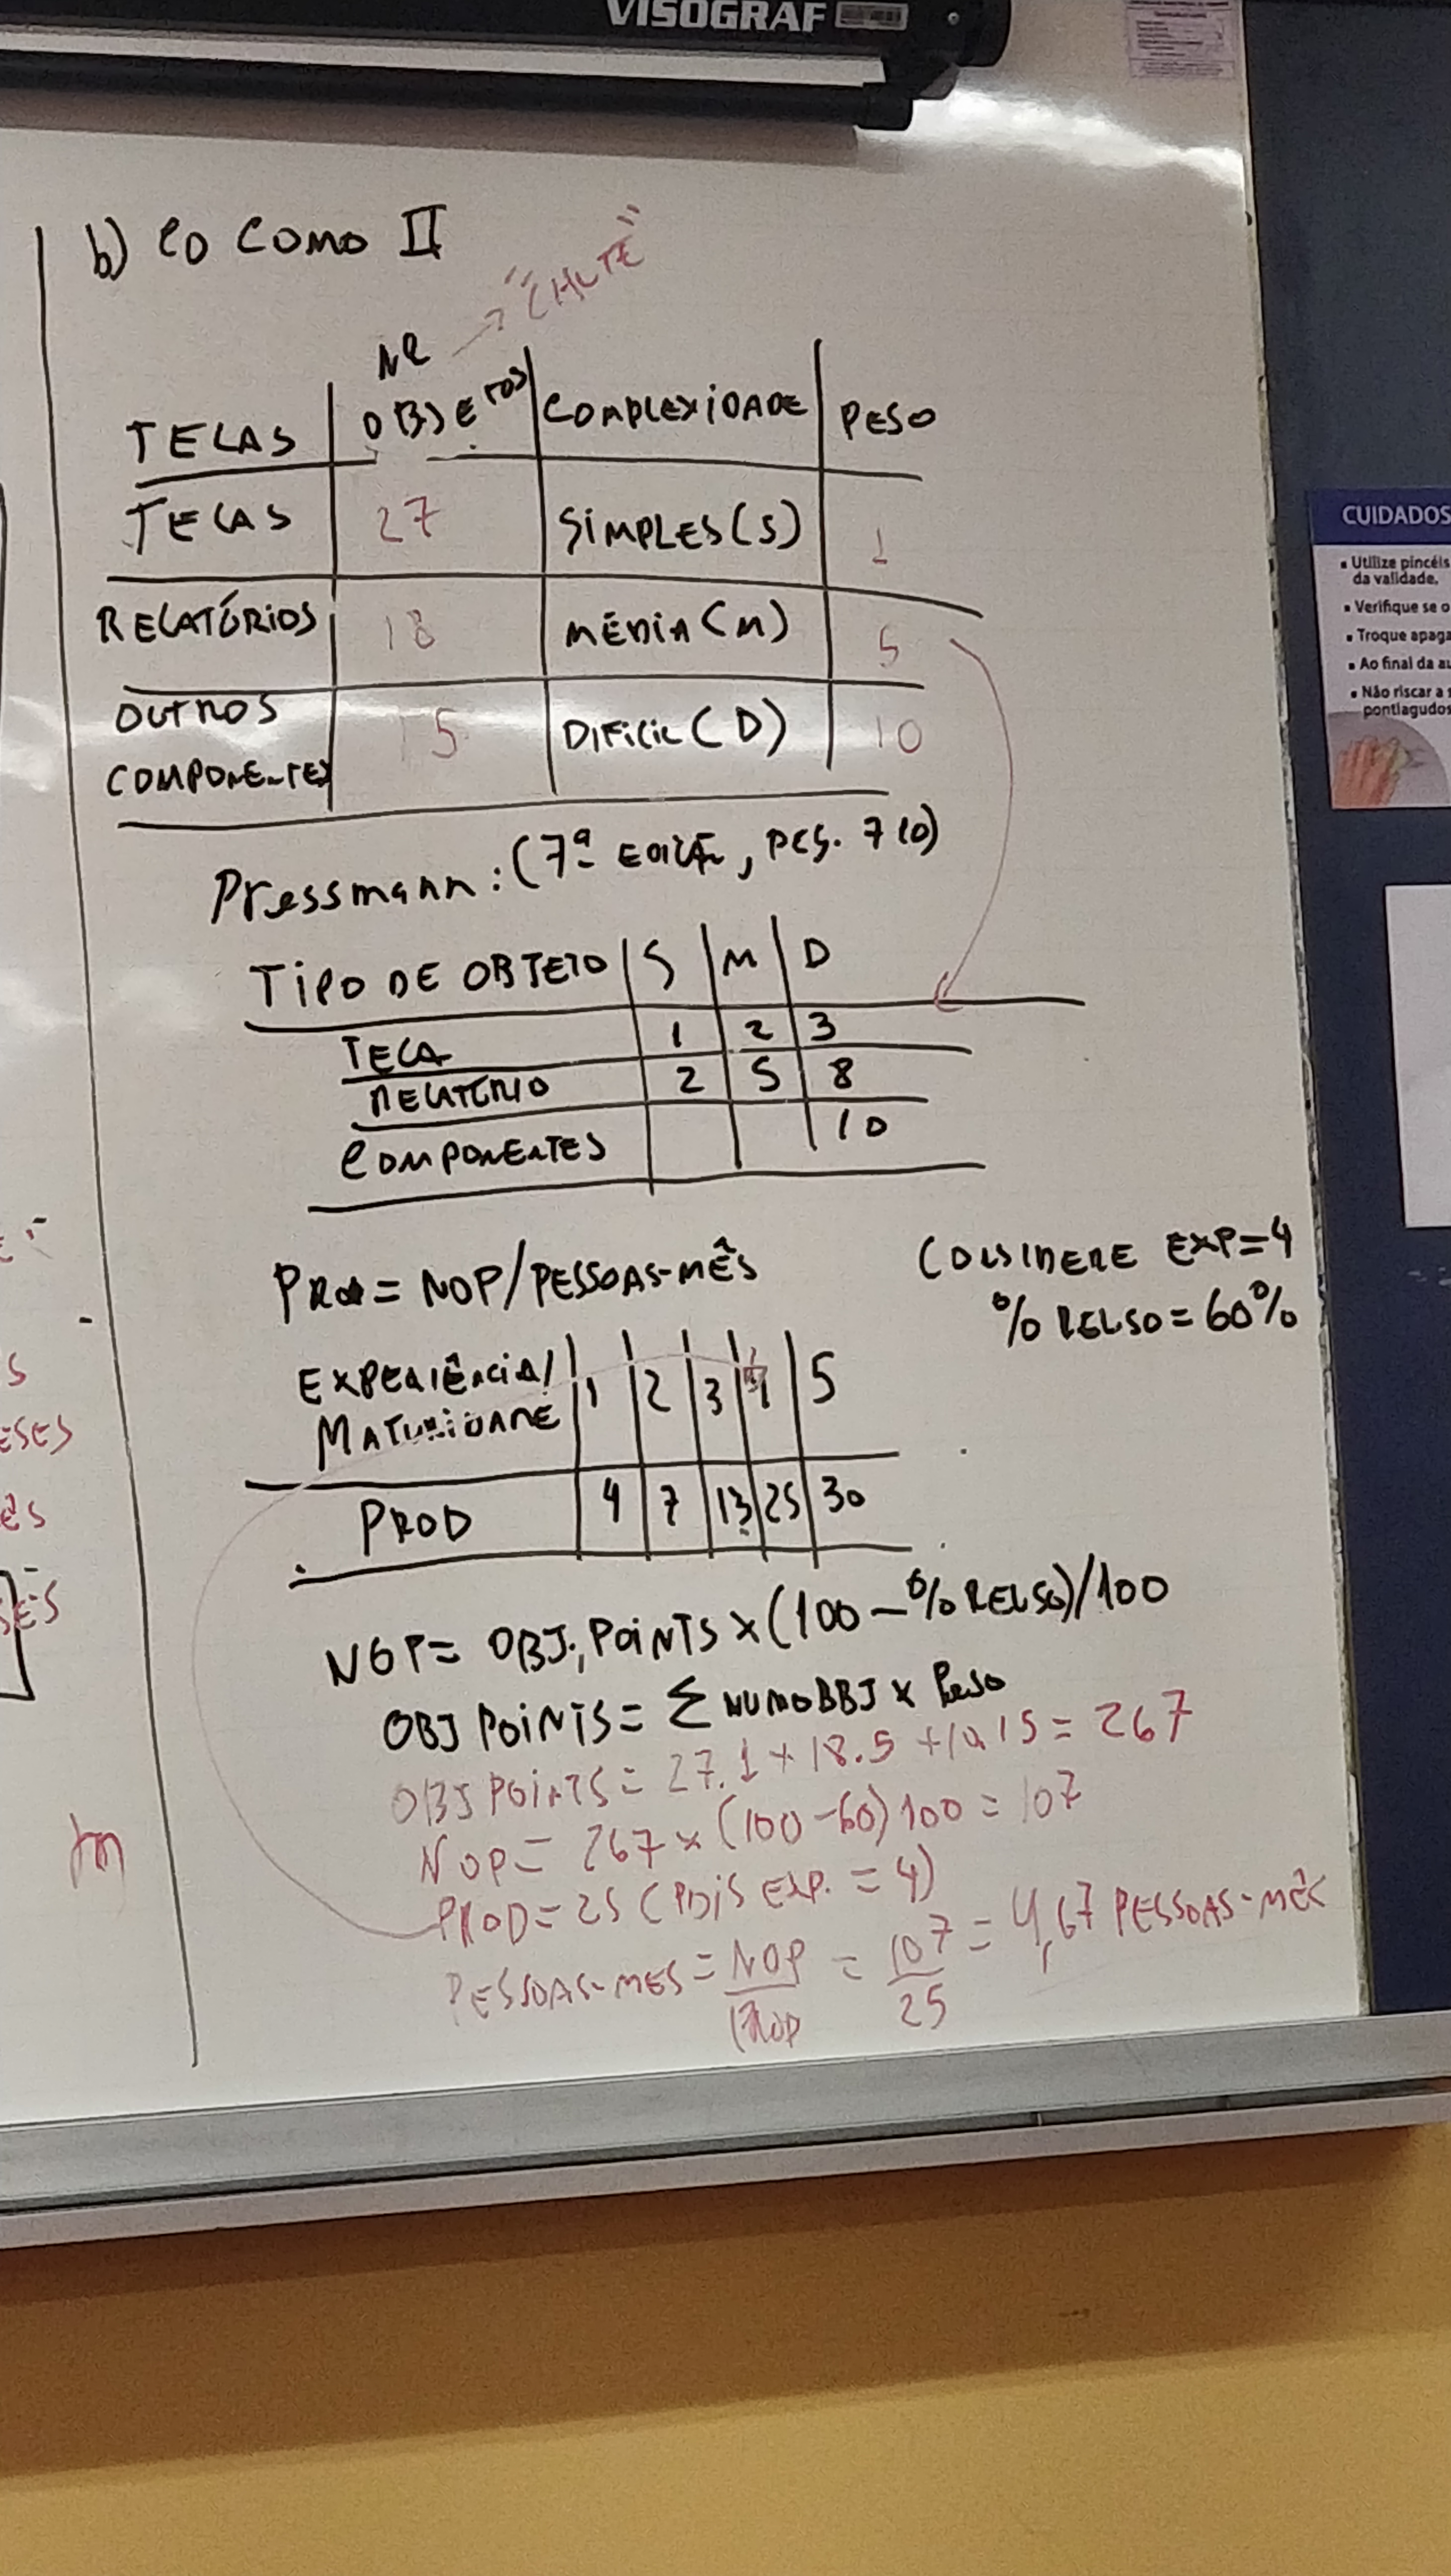 VISOGRAF
b) CO COMO II
NR → "CHUTE"
TELAS OBJETOS COMPLEXIDADE PESO
TELAS 27 SIMPLES(S) 1
RELATÓRIOS 18 MÉDIA(M) 5
OUTROS COMPONENTES 15 DIFICIL(D) 10
Pressmann: (7ª EDIÇÃO, PÁG. 710)
TIPO DE OBJETO S M D
TELA 1 2 3
RELATÓRIO 2 5 8
COMPONENTES 10
PROD = NOP/PESSOAS-MÊS
CONSIDERE EXP=4
% REUSO = 60%
EXPERIÊNCIA/ 1 2 3 4 5
MATURIDADE
PROD 4 7 13 25 30
NOP = OBJ. POINTS × (100 - % REUSO)/100
OBJ POINTS = Σ NUMOBJ × PESO
OBJ POINTS = 27.1 + 18.5 + 10.15 = 267
NOP = 267 × (100-60) 100 = 107
PROD = 25 (POIS EXP. = 4)
PESSOAS-MES = NOP/PROD = 107/25 = 4,67 PESSOAS-MÊS
CUIDADOS
• Utilize pincéis
da validade.
• Verifique se o
• Troque apaga
• Ao final da au
• Não riscar a
pontiagudos
S
ESES
ES
SES
m